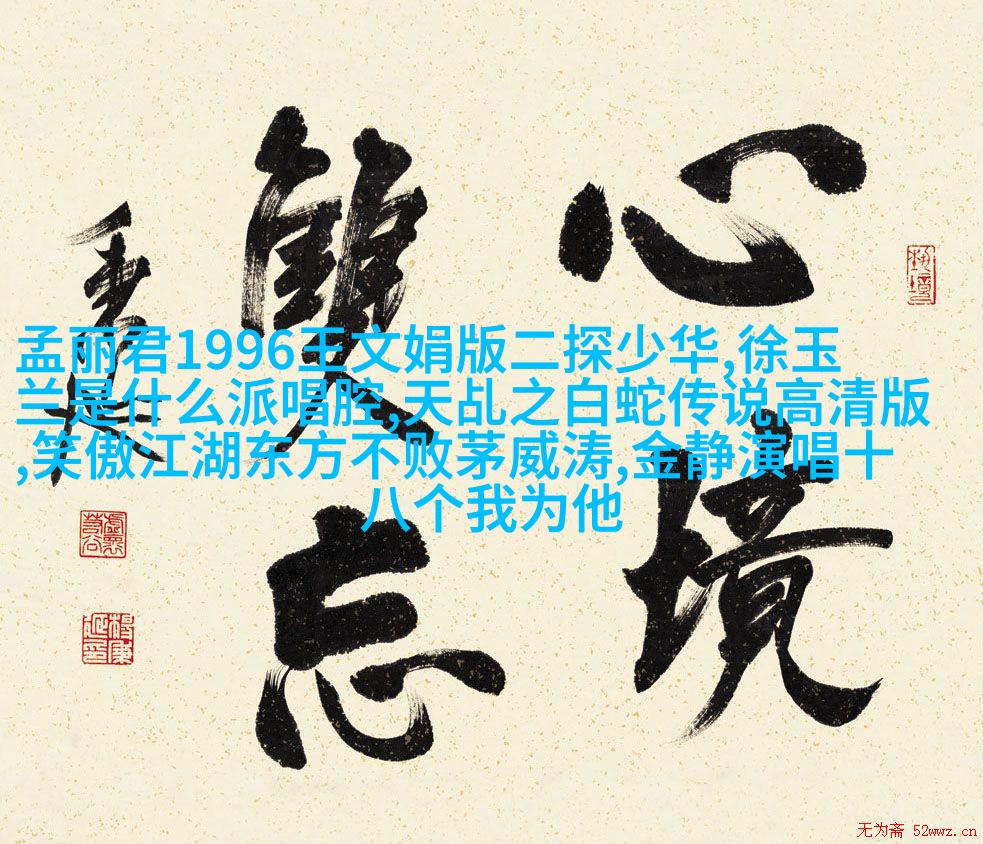 心境
雙忘
孟丽君1996王文娟版二探少华,徐玉
兰是什么派唱腔,天乩之白蛇传说高清版
,笑傲江湖东方不败茅威涛,金静演唱十
八个我为他
无为斋 52wwz.cn